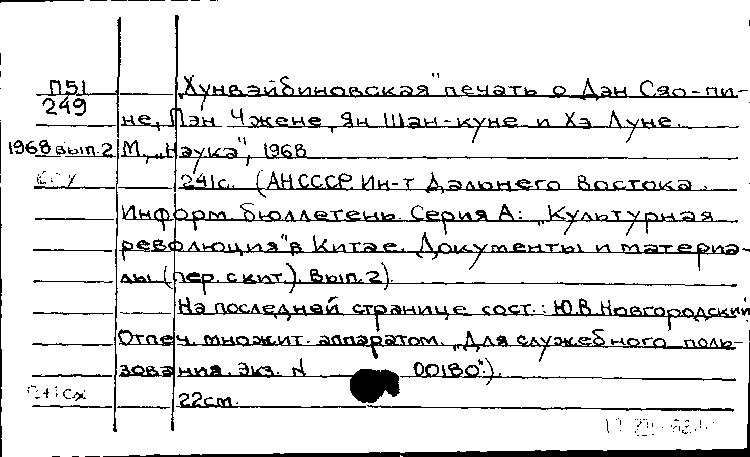 П51 „Хунвэйбиновская" печать о Дэн Сяо-пи-
249 не, Пэн Чжене, Ян Шан-куне и Хэ Луне.
1968 вып.2 М., „Наука", 1968
241с. (АН СССР. Ин-т Дальнего Востока.
Информ. бюллетень. Серия А: „Культурная
революция" в Китае. Документы и материа-
лы (пер. с кит.). Вып. 2).
На последней странице сост.: Ю.В. Новгородский
Отпеч. множит. аппаратом. „Для служебного поль-
зования. Экз. N 00180").
22см.